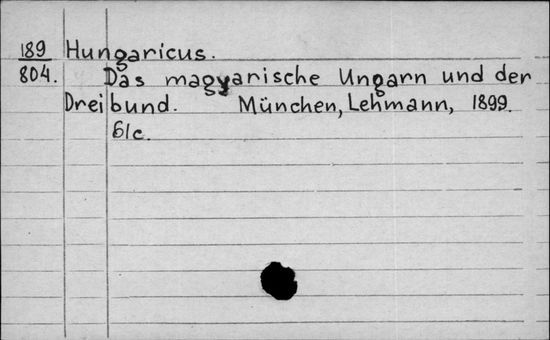 189 Hungaricus.
804. Das magyarische Ungarn und der
Dreibund. München, Lehmann, 1899.
61c.